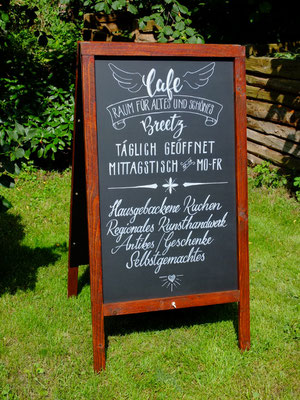 Café
RAUM FÜR ALTES UND SCHÖNES
Breetz
TÄGLICH GEÖFFNET
MITTAGSTISCH MO-FR
Hausgebackene Kuchen
Regionales Kunsthandwerk
Antikes / Geschenke
Selbstgemachtes